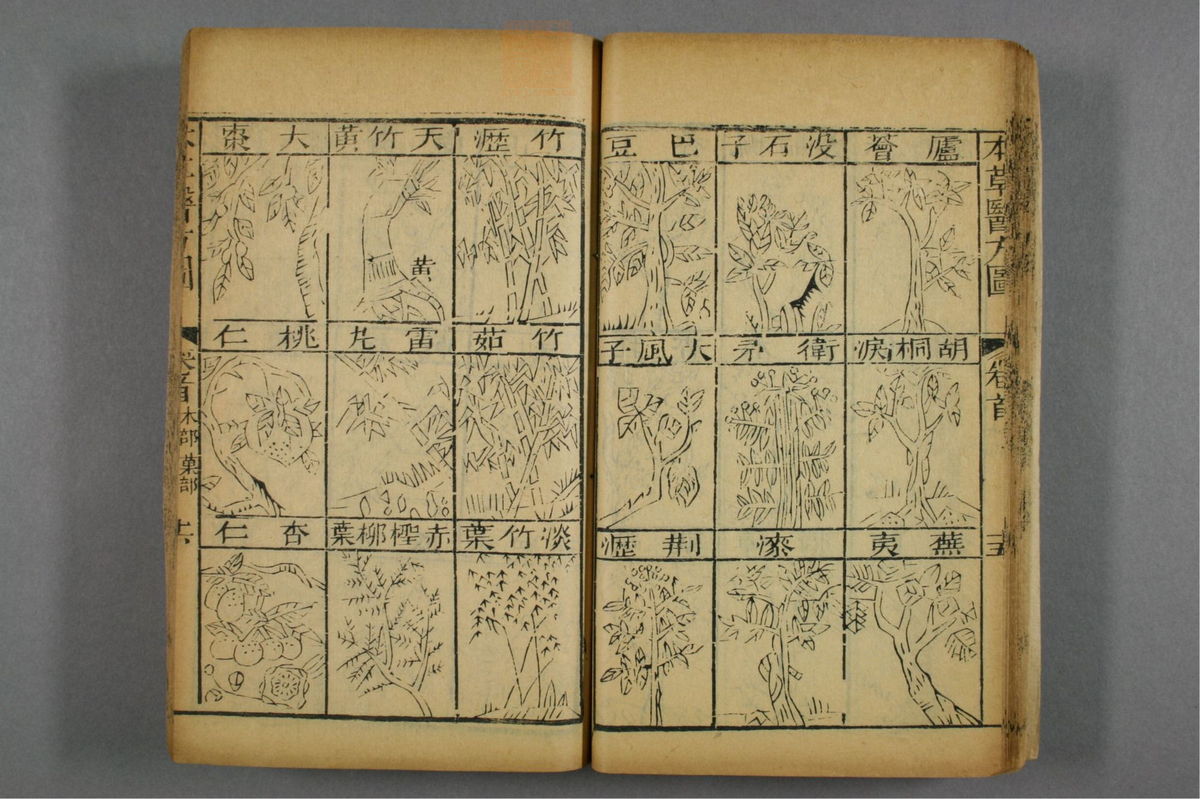 本草醫方圖
卷首
廬薈
没石子
巴豆
胡桐淚
衛矛
大風子
蕪夷
漆
荆瀝
竹瀝
天竹黄
黄
大棗
竹茹
雷丸
桃仁
淡竹葉
赤檉柳葉
杏仁
卷首
木部 菓部